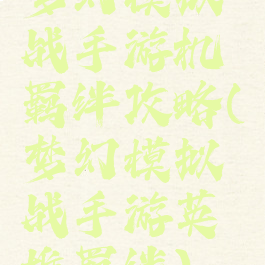 梦幻模拟
战手游机
羁绊攻略(
梦幻模拟
战手游英